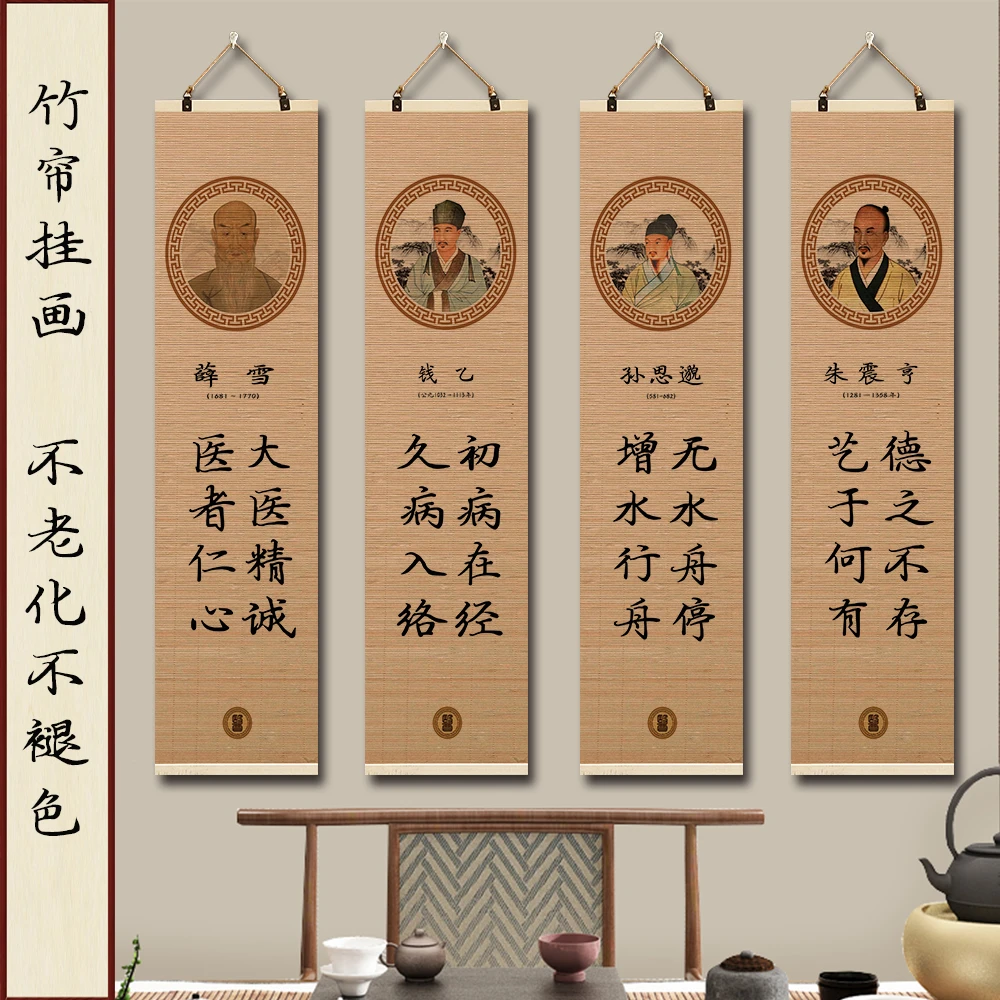 竹帘挂画
不老化不褪色
薛雪
(1681-1770)
大医精诚
医者仁心
钱乙
(公元1032-1113年)
初病在经
久病入络
孙思邈
(581-682)
无水舟停
增水行舟
朱震亨
(1281-1358年)
德之不存
艺于何有